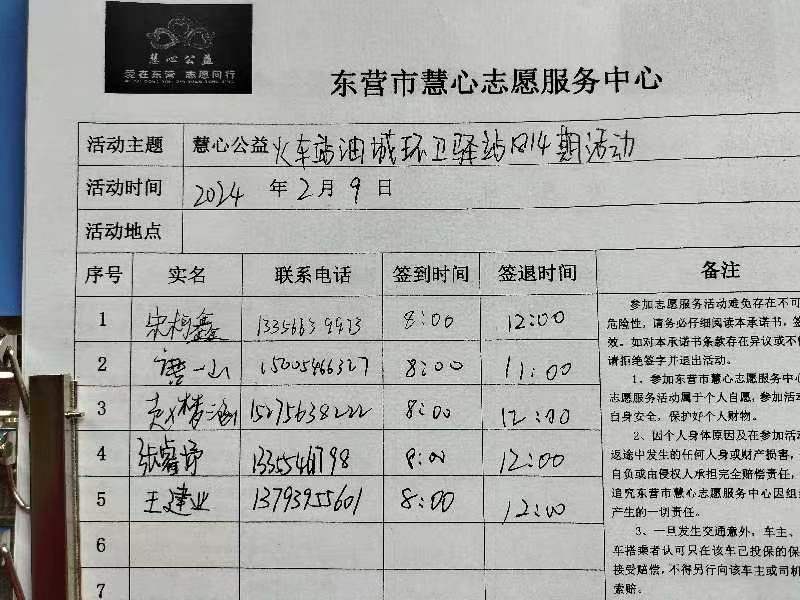 慧心公益
爱在东营 志愿同行
东营市慧心志愿服务中心
活动主题 慧心公益火车站油城环卫驿站1814期活动
活动时间 2024 年 2 月 9 日
活动地点
序号 实名 联系电话 签到时间 签退时间 备注
1 宋柯鑫 8:00 12:00
2 唐一山 15005466327 8:00 11:00
3 15275638222 8:00 12:00
4 张睿婷 8:00 12:00
5 王建业 13793955601 8:00 12:00
6
7
参加志愿服务活动难免存在不可
危险性，请务必仔细阅读本承诺书，签
效。如对本承诺书条款存在异议或不
请拒绝签字并退出活动。
1、参加东营市慧心志愿服务中心
志愿服务活动属于个人自愿，参加活动
自身安全，保护好个人财物。
2、因个人身体原因及在参加活动
返途中发生的任何人身或财产损害，
自负或由侵权人承担完全赔偿责任，
追究东营市慧心志愿服务中心因组
产生的一切责任。
3、一旦发生交通意外，车主、
车搭乘者认可只在该车已投保的保
接受赔偿，不得另行向该车主或司机
索赔。